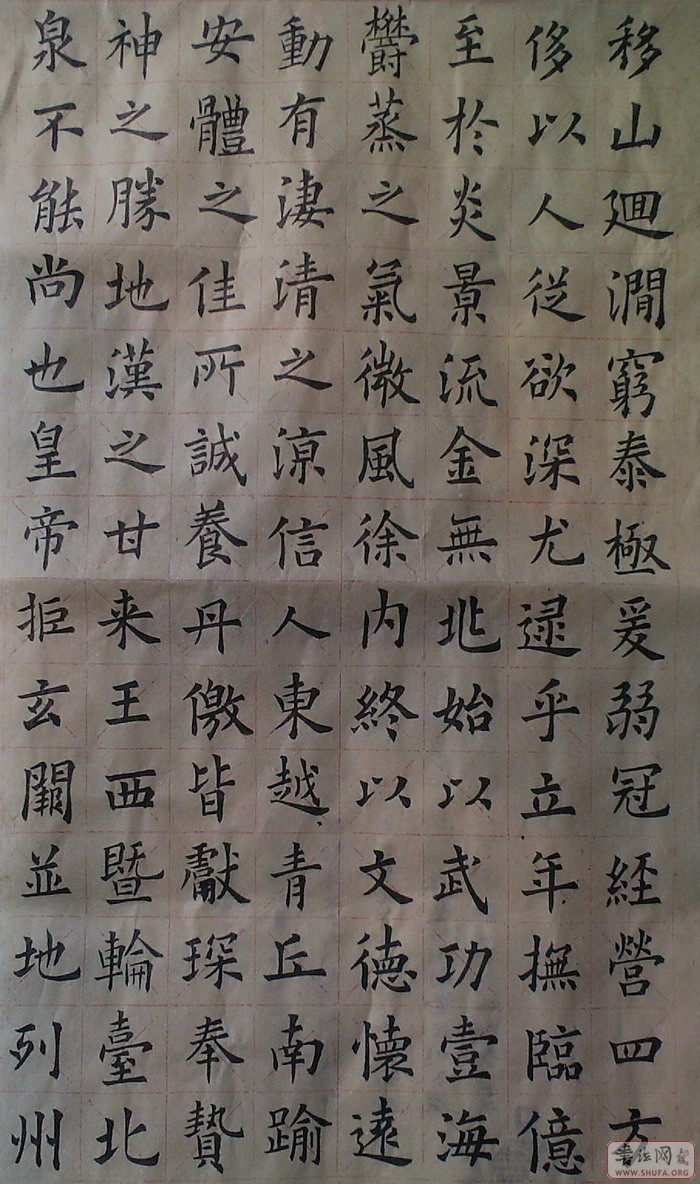 移山廻澗窮泰極爰弱冠經營四方
侈以人從欲深尤逮乎立年撫臨億
至於炎景流金無兆始以武功壹海
欝蒸之氣微風徐內終以文德懷遠
動有淒清之涼信人東越青丘南踰
安體之佳所誠養丹儌皆獻琛奉贄
神之勝地漢之甘来王西暨輪臺北
泉不能尚也皇帝拒玄闕並地列州
书法网报
WWW.SHUFA.ORG